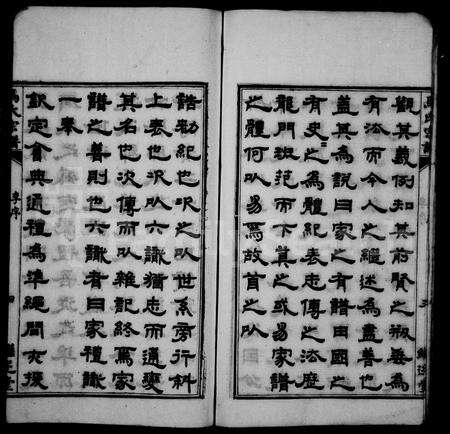 觀其義例知其前賢之垂為
有法而今人之繼述為盡善也
蓋其為說曰家之有譜由國之
有史之為體紀表志傳之法歷
龍門班范而下莫之或易家譜
之體何以易焉故首之以
誥勅紀也次之以世系旁行斜
上表也次以六議猶志而通變
其名也次傳而以雜記終焉家
譜之善則也六議者曰家禮議
一奉
欽定會典通禮為準繩間亦援
序
四